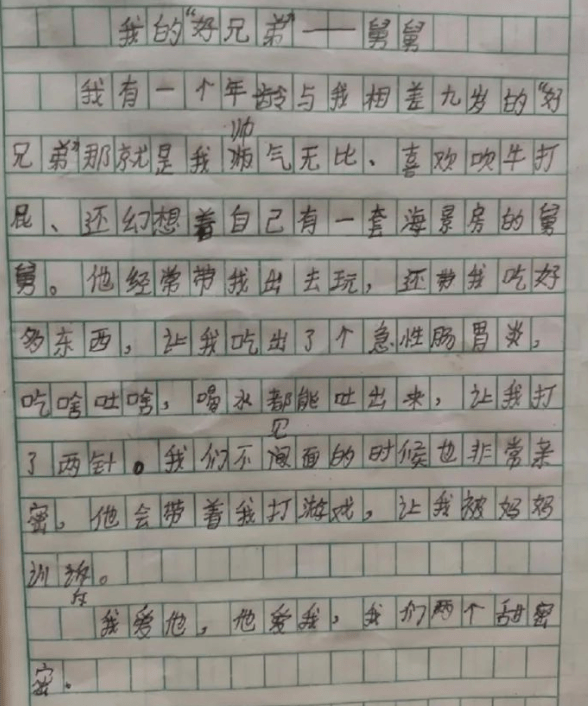 我的“好兄弟”——舅舅
我有一个年龄与我相差九岁的“好
兄弟”那就是我帅气无比、喜欢吹牛打
屁、还幻想着自己有一套海景房的舅
舅。他经常带我出去玩，还带我吃好
多东西，让我吃出了个急性肠胃炎，
吃啥吐啥，喝水都能吐出来，让我打
了两针。我们不见面的时候也非常亲
密，他会带着我打游戏，让我被妈妈
训斥。
我爱他，他爱我，我们两个甜密
密.